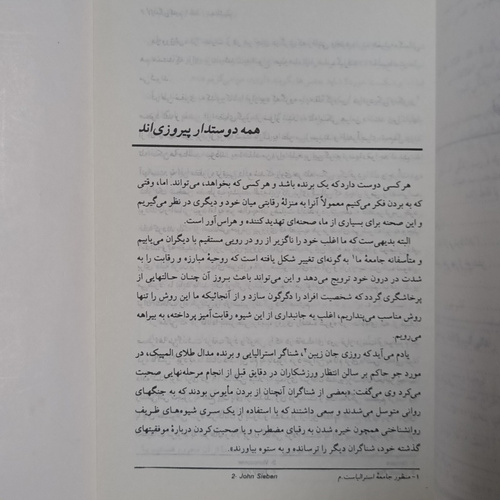 همه دوستدار پیروزی‌اند
هر کسی دوست دارد که یک برنده باشد و هر کسی که بخواهد، می‌تواند. اما، وقتی
که به بردن فکر می‌کنیم معمولاً آنرا به منزلهٔ رقابتی میان خود و دیگری در نظر می‌گیریم
و این صحنه برای بسیاری از ما، صحنه‌ای تهدیدکننده و هراس‌آور است.
البته بدیهی‌ست که ما اغلب خود را ناگزیر از رو در رویی مستقیم با دیگران می‌یابیم
و متأسفانه جامعهٔ ما۱ به گونه‌ای تغییر شکل یافته است که روحیهٔ مبارزه و رقابت را به
شدت در درون خود ترویج می‌دهد و این می‌تواند باعث بروز آن چنان حالتهایی از
پرخاشگری گردد که شخصیت افراد را دگرگون سازد و از آنجائیکه ما این روش را تنها
روش مناسب می‌پنداریم، اغلب به جانبداری از این شیوه رقابت‌آمیز پرداخته، به بیراهه
می‌رویم.
یادم می‌آید که روزی جان زیبن۲، شناگر استرالیایی و برنده مدال طلای المپیک، در
مورد جو حاکم بر سالن انتظار ورزشکاران در دقایق قبل از انجام مرحله‌نهایی صحبت
می‌کرد وی می‌گفت: «بعضی از شناگران آنچنان از بردن مأیوس بودند که به جنگهای
روانی متوسل می‌شدند و سعی داشتند که با استفاده از یک سری شیوه‌های ظریف
روانشناختی همچون خیره شدن به رقبای مضطرب و یا صحبت کردن دربارهٔ موفقیتهای
گذشته خود، شناگران دیگر را ترسانده و به ستوه بیاورند»
۱- منظور جامعهٔ استرالیاست.م
2- John Sieben